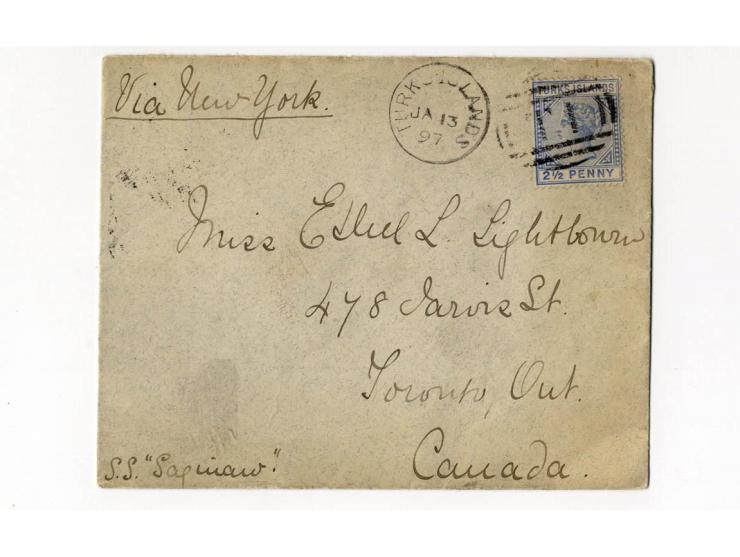 Via New York.
TURKS ISLANDS
JA 13
97
TURKS ISLANDS
2½ PENNY
Miss Ethel L. Lightbourn
478 Jarvis St.
Toronto, Ont.
Canada.
S.S. "Saginaw".